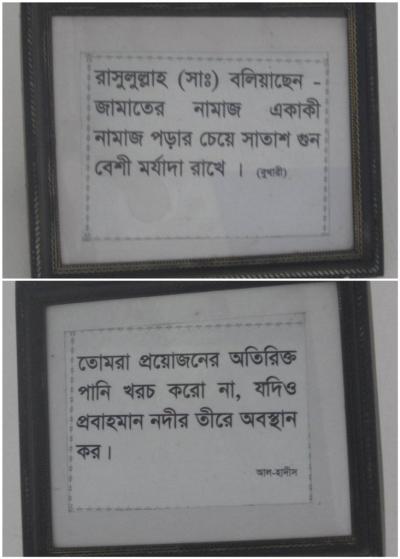 রাসুলুল্লাহ (সাঃ) বলিয়াছেন -
জামাতের নামাজ একাকী
নামাজ পড়ার চেয়ে সাতাশ গুন
বেশী মর্যাদা রাখে । (বুখারী)
তোমরা প্রয়োজনের অতিরিক্ত
পানি খরচ করো না, যদিও
প্রবাহমান নদীর তীরে অবস্থান
কর।
আল-হাদীস